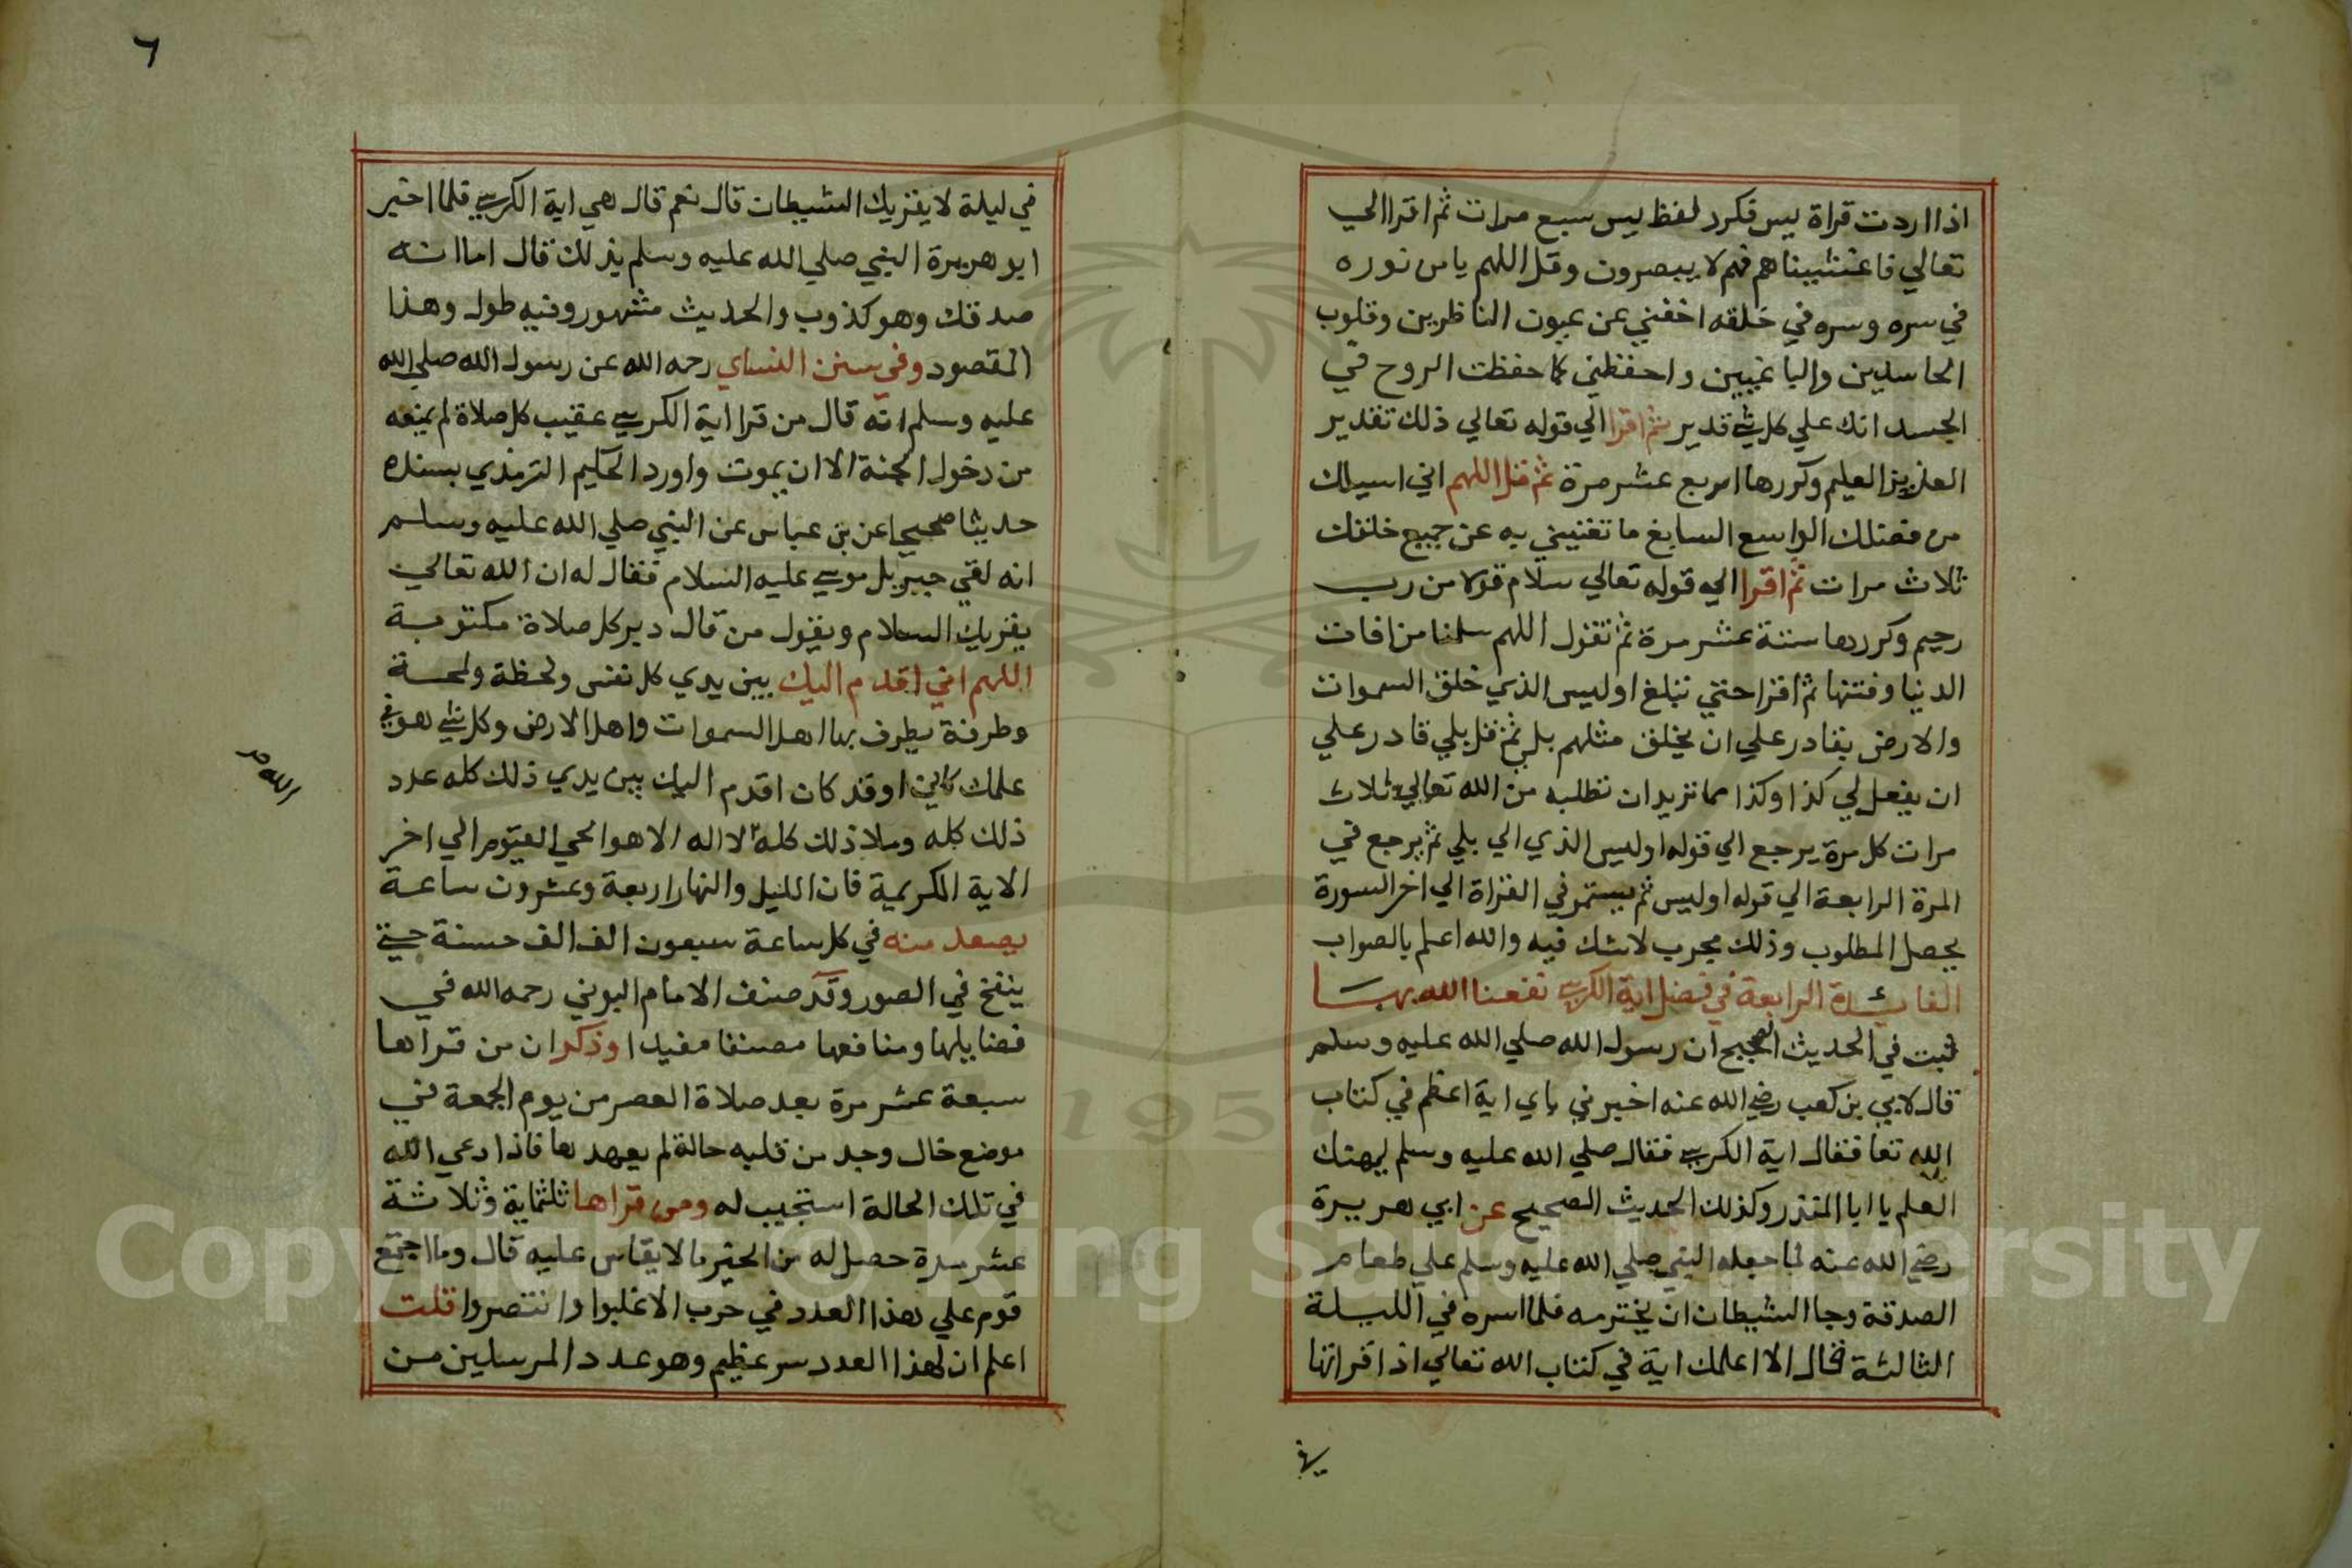 اذا اردت قراة يس فكرر لفظ يس سبع مرات ثم اقرا الي
تعالي فاغشيناهم فهم لا يبصرون وقل اللهم يا من نوره
في سره وسره في خلقه اخفني عن عيون الناظرين وقلوب
الحاسدين والباغيين واحفظني كما حفظت الروح في
الجسد انك علي كل شي قدير ثم اقرا الي قوله تعالي ذلك تقدير
العزيز العليم وكررها اربع عشر مرة ثم قل اللهم اني اسيلك
من فضلك الواسع السابغ ما تغنيني به عن جميع خلقك
ثلاث مرات ثم اقرا الي قوله تعالي سلام قولا من رب
رحيم وكررها ستة عشر مرة ثم تقول اللهم سلمنا من افات
الدنيا وفتنها ثم اقرا حتي تبلغ اوليس الذي خلق السموات
والارض بقادر علي ان يخلق مثلهم بلي ثم قل بلي قادر علي
ان يفعل لي كذا وكذا مما تريد ان تطلبه من الله تعالي ثلاث
مرات كل مرة يرجع الي قوله اوليس الذي الي بلي ثم يرجع في
المرة الرابعة الي قوله اوليس ثم يستمر في القراة الي اخر السورة
يحصل المطلوب وذلك مجرب لا شك فيه والله اعلم بالصواب
الفائدة الرابعة في فضل اية الكرسي نفعنا الله بها
ثبت في الحديث الصحيح ان رسول الله صلي الله عليه وسلم
قال لابي بن كعب رضي الله عنه اخبرني باي اية اعظم في كتاب
الله تعا فقال اية الكرسي فقال صلي الله عليه وسلم ليهنك
العلم يا ابا المنذر وكذلك الحديث الصحيح عن ابي هريرة
رضي الله عنه لما جعله النبي صلي الله عليه وسلم علي طعام
الصدقة وجا الشيطان ان يخترمه فلما اسره في الليلة
الثالثة قال الا اعلمك اية في كتاب الله تعالي اذا قراتها
في
٦
في ليلة لا يقربك الشيطان قال نعم قال هي اية الكرسي فلما اخبر
ابو هريرة النبي صلي الله عليه وسلم بذلك قال اما انه
صدقك وهو كذوب والحديث مشهور وفيه طول وهذا
المقصود وفي سنن النساي رحمه الله عن رسول الله صلي الله
عليه وسلم انه قال من قرا اية الكرسي عقيب كل صلاة لم يمنعه
من دخول الجنة الا ان يموت واورد الحكيم الترمذي بسنده
حديثا صحيحا عن بن عباس عن النبي صلي الله عليه وسلم
انه لقي جبريل موسي عليه السلام فقال له ان الله تعالي
يقريك السلام ويقول من قال دبر كل صلاة مكتوبة
اللهم اني اقدم اليك بين يدي كل نفس ولحظة ولمحة
وطرفة يطرف بها اهل السموات واهل الارض وكل شي هو في
علمك كاين او قد كان اقدم اليك بين يدي ذلك كله عدد
ذلك كله وملا ذلك كله لا اله الا هو الحي القيوم الي اخر
الله
الاية الكريمة فان الليل والنهار اربعة وعشرون ساعة
يصعد منه في كل ساعة سبعون الف الف حسنة حتي
ينفخ في الصور وقد صنف الامام البوني رحمه الله في
فضايلها ومنافعها مصنفا مفيدا وذكر ان من قراها
سبعة عشر مرة بعد صلاة العصر من يوم الجمعة في
موضع خال وجد من قلبه حالة لم يعهدها فاذا دعي الله
في تلك الحالة استجيب له ومن قراها ثلثماية وثلاثة
عشر مرة حصل له من الخير ما لا يقاس عليه قال وما اجتمع
قوم علي هذا العدد في حرب الا غلبوا وانتصروا قلت
اعلم ان لهذا العدد سر عظيم وهو عدد المرسلين من
Copyright © King Saud University
1957